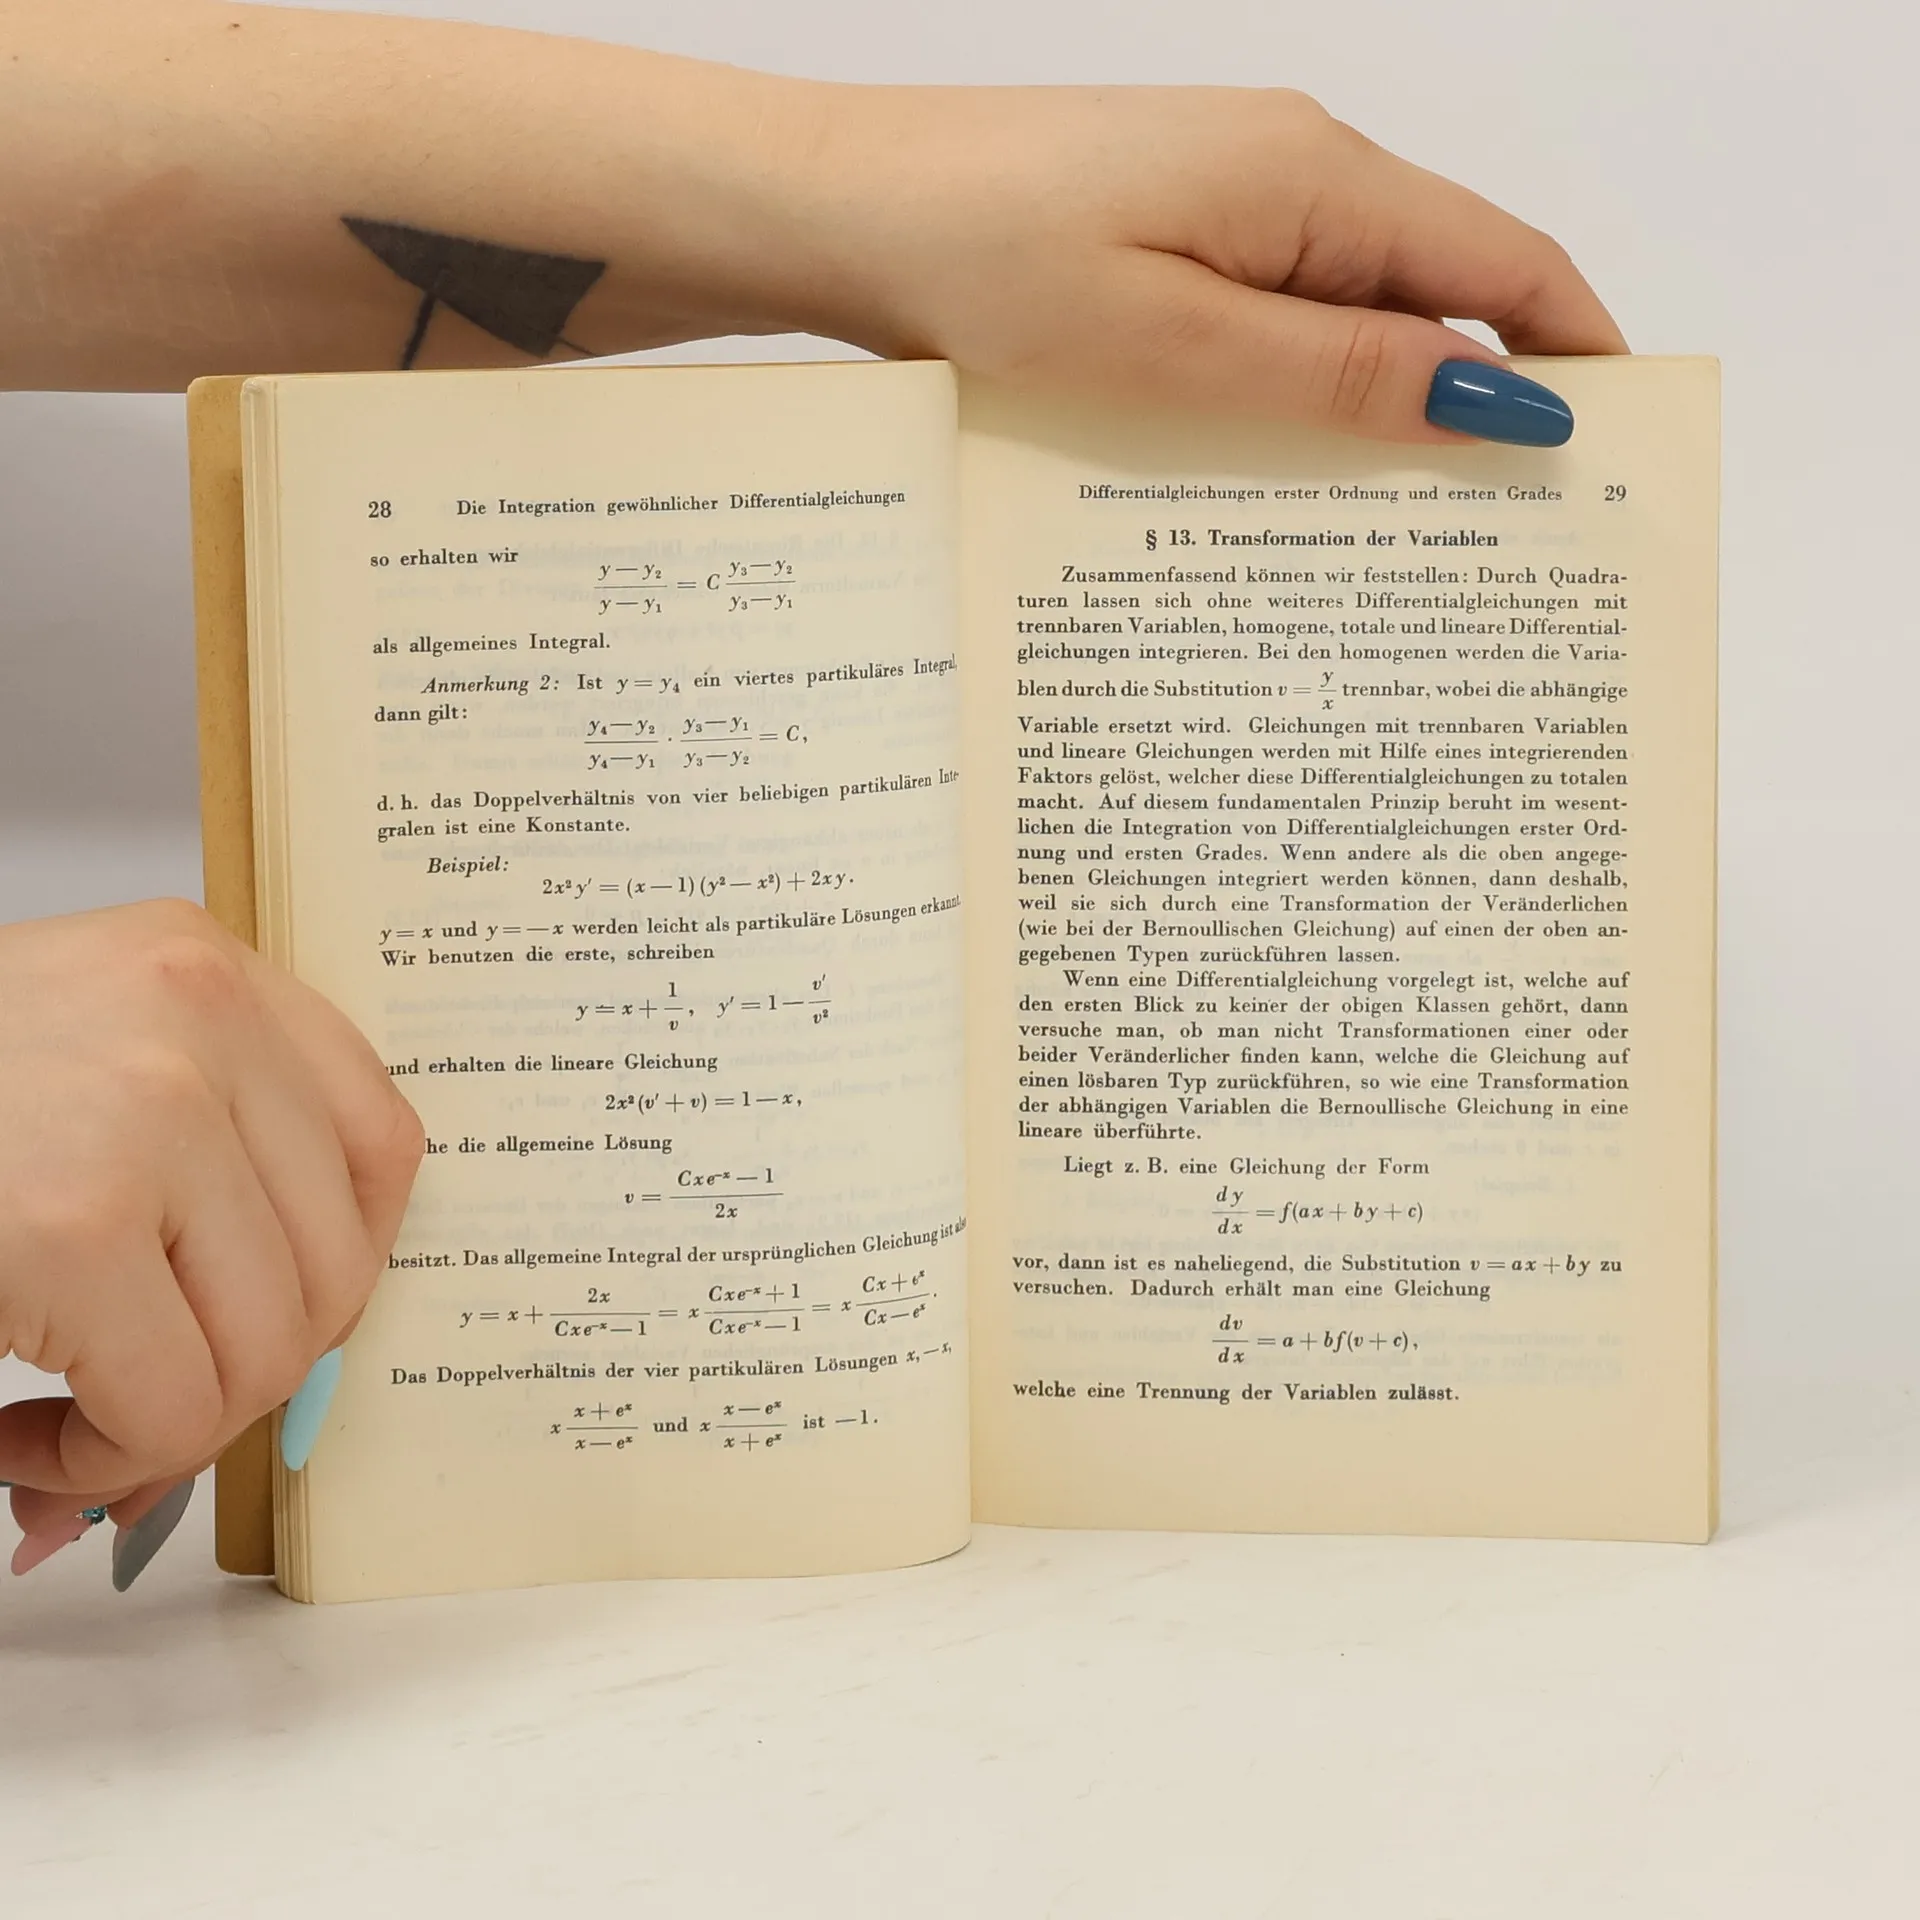 28 Die Integration gewöhnlicher Differentialgleichungen
so erhalten wir
(y — y₂)/(y — y₁) = C (y₃ — y₂)/(y₃ — y₁)
als allgemeines Integral.
Anmerkung 2: Ist y = y₄ ein viertes partikuläres Integral,
dann gilt:
(y₄ — y₂)/(y₄ — y₁) · (y₃ — y₁)/(y₃ — y₂) = C,
d. h. das Doppelverhältnis von vier beliebigen partikulären Inte-
gralen ist eine Konstante.
Beispiel:
2x² y′ = (x — 1) (y² — x²) + 2xy.
y = x und y = — x werden leicht als partikuläre Lösungen erkannt.
Wir benutzen die erste, schreiben
y = x + 1/v, y′ = 1 — v′/v²
und erhalten die lineare Gleichung
2x² (v′ + v) = 1 — x,
he die allgemeine Lösung
v = (Cxe⁻ˣ — 1)/(2x)
besitzt. Das allgemeine Integral der ursprünglichen Gleichung ist also
y = x + 2x/(Cxe⁻ˣ — 1) = x (Cxe⁻ˣ + 1)/(Cxe⁻ˣ — 1) = x (Cx + eˣ)/(Cx — eˣ).
Das Doppelverhältnis der vier partikulären Lösungen x, — x,
x (x + eˣ)/(x — eˣ) und x (x — eˣ)/(x + eˣ) ist —1.
Differentialgleichungen erster Ordnung und ersten Grades 29
§ 13. Transformation der Variablen
Zusammenfassend können wir feststellen: Durch Quadra-
turen lassen sich ohne weiteres Differentialgleichungen mit
trennbaren Variablen, homogene, totale und lineare Differential-
gleichungen integrieren. Bei den homogenen werden die Varia-
blen durch die Substitution v = y/x trennbar, wobei die abhängige
Variable ersetzt wird. Gleichungen mit trennbaren Variablen
und lineare Gleichungen werden mit Hilfe eines integrierenden
Faktors gelöst, welcher diese Differentialgleichungen zu totalen
macht. Auf diesem fundamentalen Prinzip beruht im wesent-
lichen die Integration von Differentialgleichungen erster Ord-
nung und ersten Grades. Wenn andere als die oben angege-
benen Gleichungen integriert werden können, dann deshalb,
weil sie sich durch eine Transformation der Veränderlichen
(wie bei der Bernoullischen Gleichung) auf einen der oben an-
gegebenen Typen zurückführen lassen.
Wenn eine Differentialgleichung vorgelegt ist, welche auf
den ersten Blick zu keiner der obigen Klassen gehört, dann
versuche man, ob man nicht Transformationen einer oder
beider Veränderlicher finden kann, welche die Gleichung auf
einen lösbaren Typ zurückführen, so wie eine Transformation
der abhängigen Variablen die Bernoullische Gleichung in eine
lineare überführte.
Liegt z. B. eine Gleichung der Form
dy/dx = f(ax + by + c)
vor, dann ist es naheliegend, die Substitution v = ax + by zu
versuchen. Dadurch erhält man eine Gleichung
dv/dx = a + bf(v + c),
welche eine Trennung der Variablen zulässt.